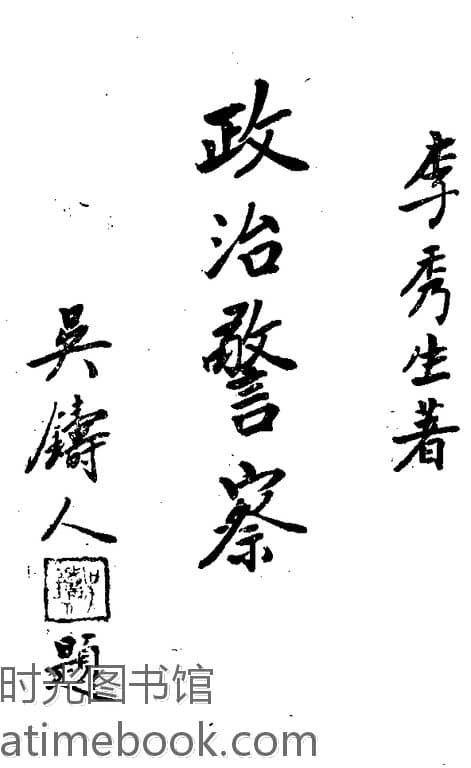 李秀生著
政治警察
吳鑄人題
时光图书馆
atimebook.com